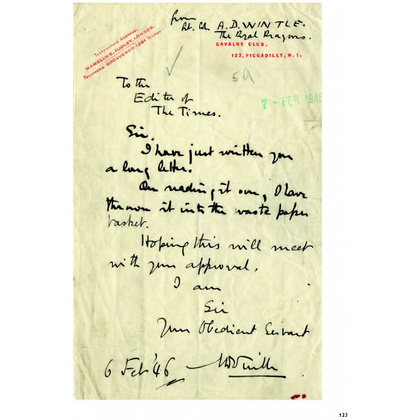 from
Lt. Col. A.D. WINTLE.
The Royal Dragoons.
CAVALRY CLUB,
127, PICCADILLY, W.1.
TELEGRAPHIC ADDRESS,
MAMELUKE, AUDLEY, LONDON.
TELEPHONE GROSVENOR 1261
7 - FEB 1946
To the
Editor of
The Times.
Sir,
I have just written you
a long letter.
On reading it over, I have
thrown it into the waste paper
basket.
Hoping this will meet
with your approval,
I am
Sir
Your Obedient Servant
6 Feb '46 AD Wintle
123